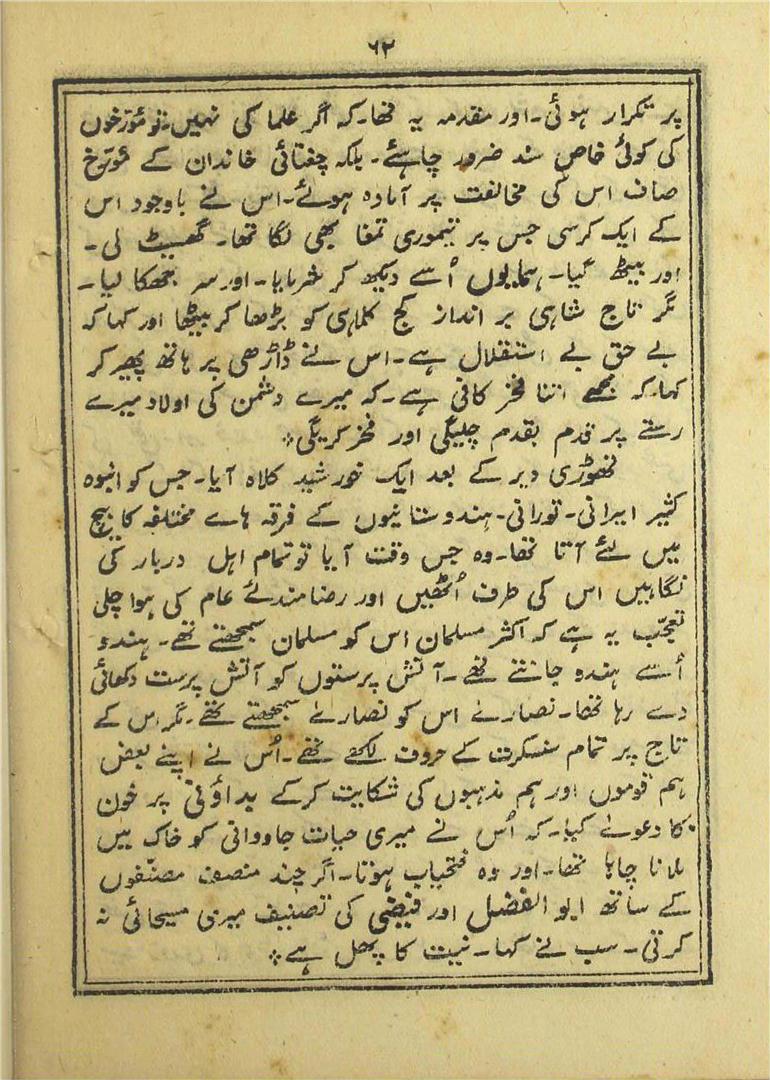 ۶۲
پر تکرار ہوئی۔ اور مقدمہ یہ تھا۔ کہ اگر علما کی نہیں۔ تو مؤرخوں
کی کوئی خاص سند ضرور چاہئے۔ بلکہ چغتائی خاندان کے مؤرخ
صاف اس کی مخالفت پر آمادہ ہوئے۔ اس نے باوجود اس
کے ایک کرسی جس پر تیموری تمغا بھی لگا تھا۔ گھسیٹ لی۔
اور بیٹھ گیا۔ ہمایوں اُسے دیکھ کر شرمایا۔ اور سر جھکا لیا۔
مگر تاج شاہی بر انداز کج کلاہی کو بڑھا کر بیٹھا اور کہا کہ
بے حق بے استقلال ہے۔ اس نے ڈاڑھی پر ہاتھ پھیر کر
کہا۔ کہ مجھے اتنا فخر کافی ہے۔ کہ میرے دشمن کی اولاد میرے
رستے پر قدم بقدم چلیگی اور فخر کریگی ؞
تھوڑی دیر کے بعد ایک خورشید کلاہ آیا۔ جس کو انبوہ
کثیر ایرانی۔ تورانی۔ ہندوستانیوں کے فرقہ ہاے مختلفہ کا بیچ
میں لئے آتا تھا۔ وہ جس وقت آیا تو تمام اہل دربار کی
نگاہیں اس کی طرف اُٹھیں اور رضامندئے عام کی ہوا چلی
تعجّب یہ ہے کہ اکثر مسلمان اس کو مسلمان سمجھتے تھے۔ ہندو
اُسے ہندو جانتے تھے۔ آتش پرستوں کو آتش پرست دکھائی
دے رہا تھا۔ نصارےٰ اس کو نصارےٰ سمجھتے تھے۔ مگر اس کے
تاج پر تمام سنسکرت کے حروف لکھے تھے۔ اُس نے اپنے بعض
ہم قوموں اور ہم مذہبوں کی شکایت کرکے بداؤنی پر خون
کا دعوےٰ کیا۔ کہ اُس نے میری حیات جاودانی کو خاک میں
ملانا چاہا تھا۔ اور وہ فتحیاب ہوتا۔ اگر چند منصف مصنّفوں
کے ساتھ ابو الفضل اور فیضی کی تصنیف میری مسیحائی نہ
کرتی۔ سب نے کہا۔ نیت کا پھل ہے ؞